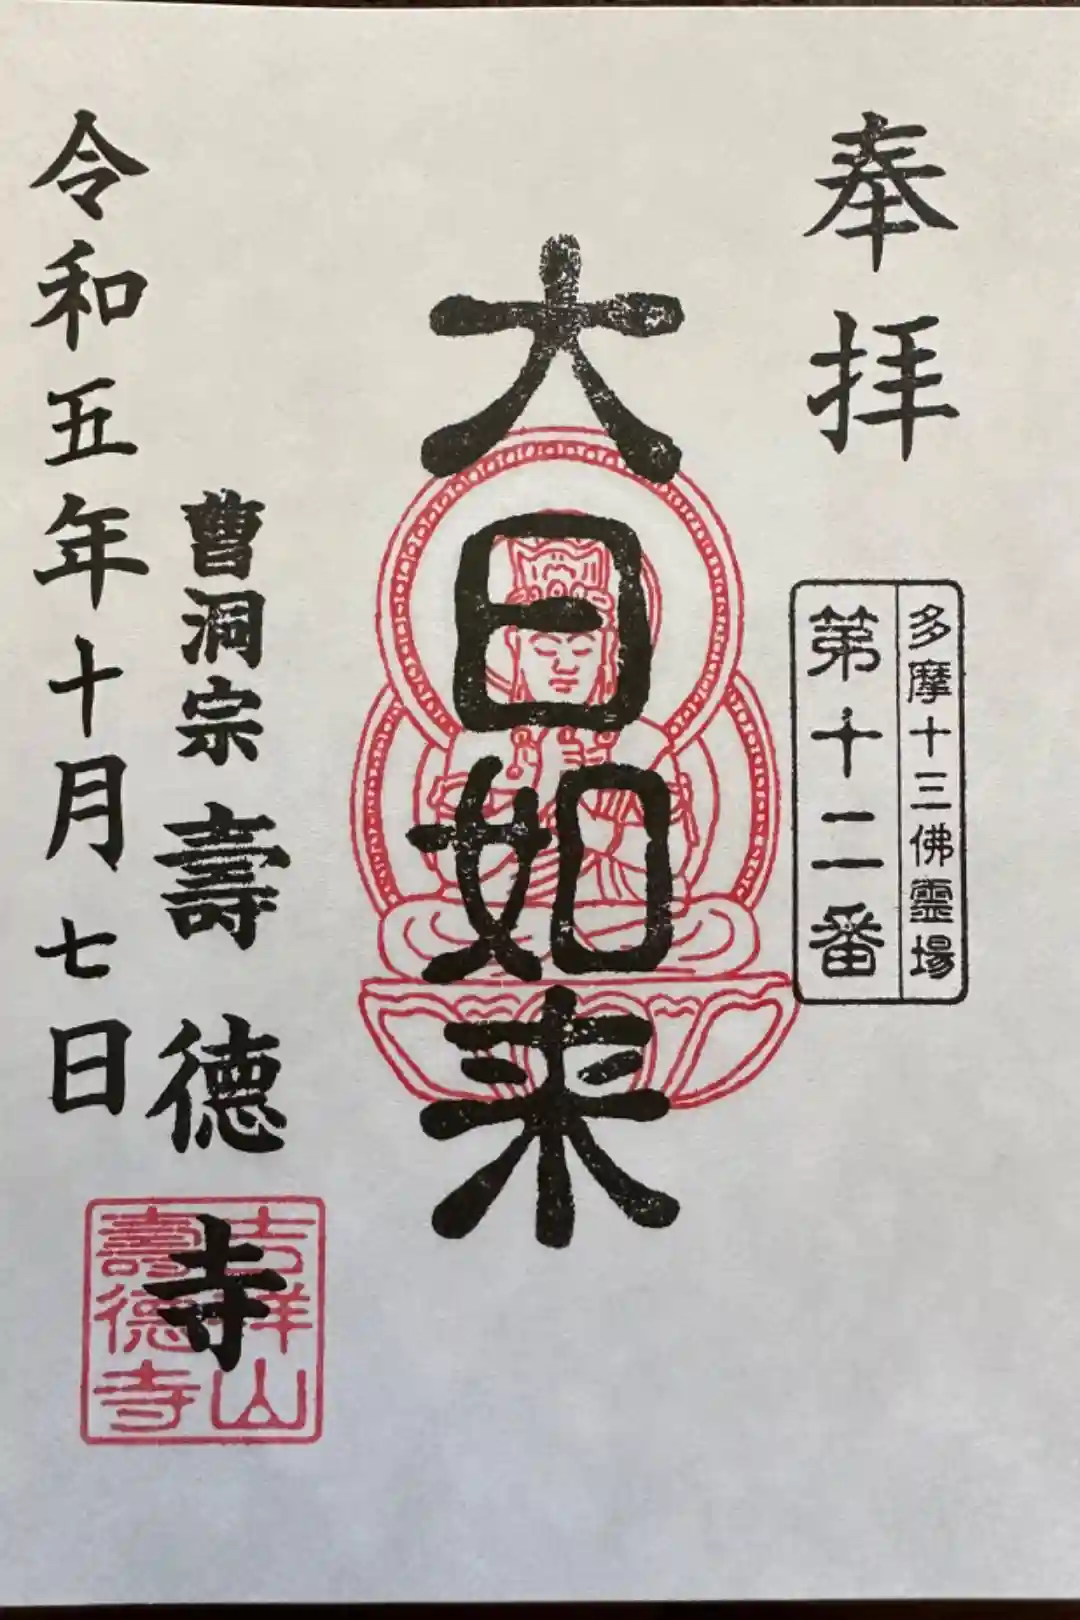 奉拝
多摩十三佛霊場
第十二番
大日如来
曹洞宗 壽德寺
令和五年十月七日
吉祥山
壽德寺